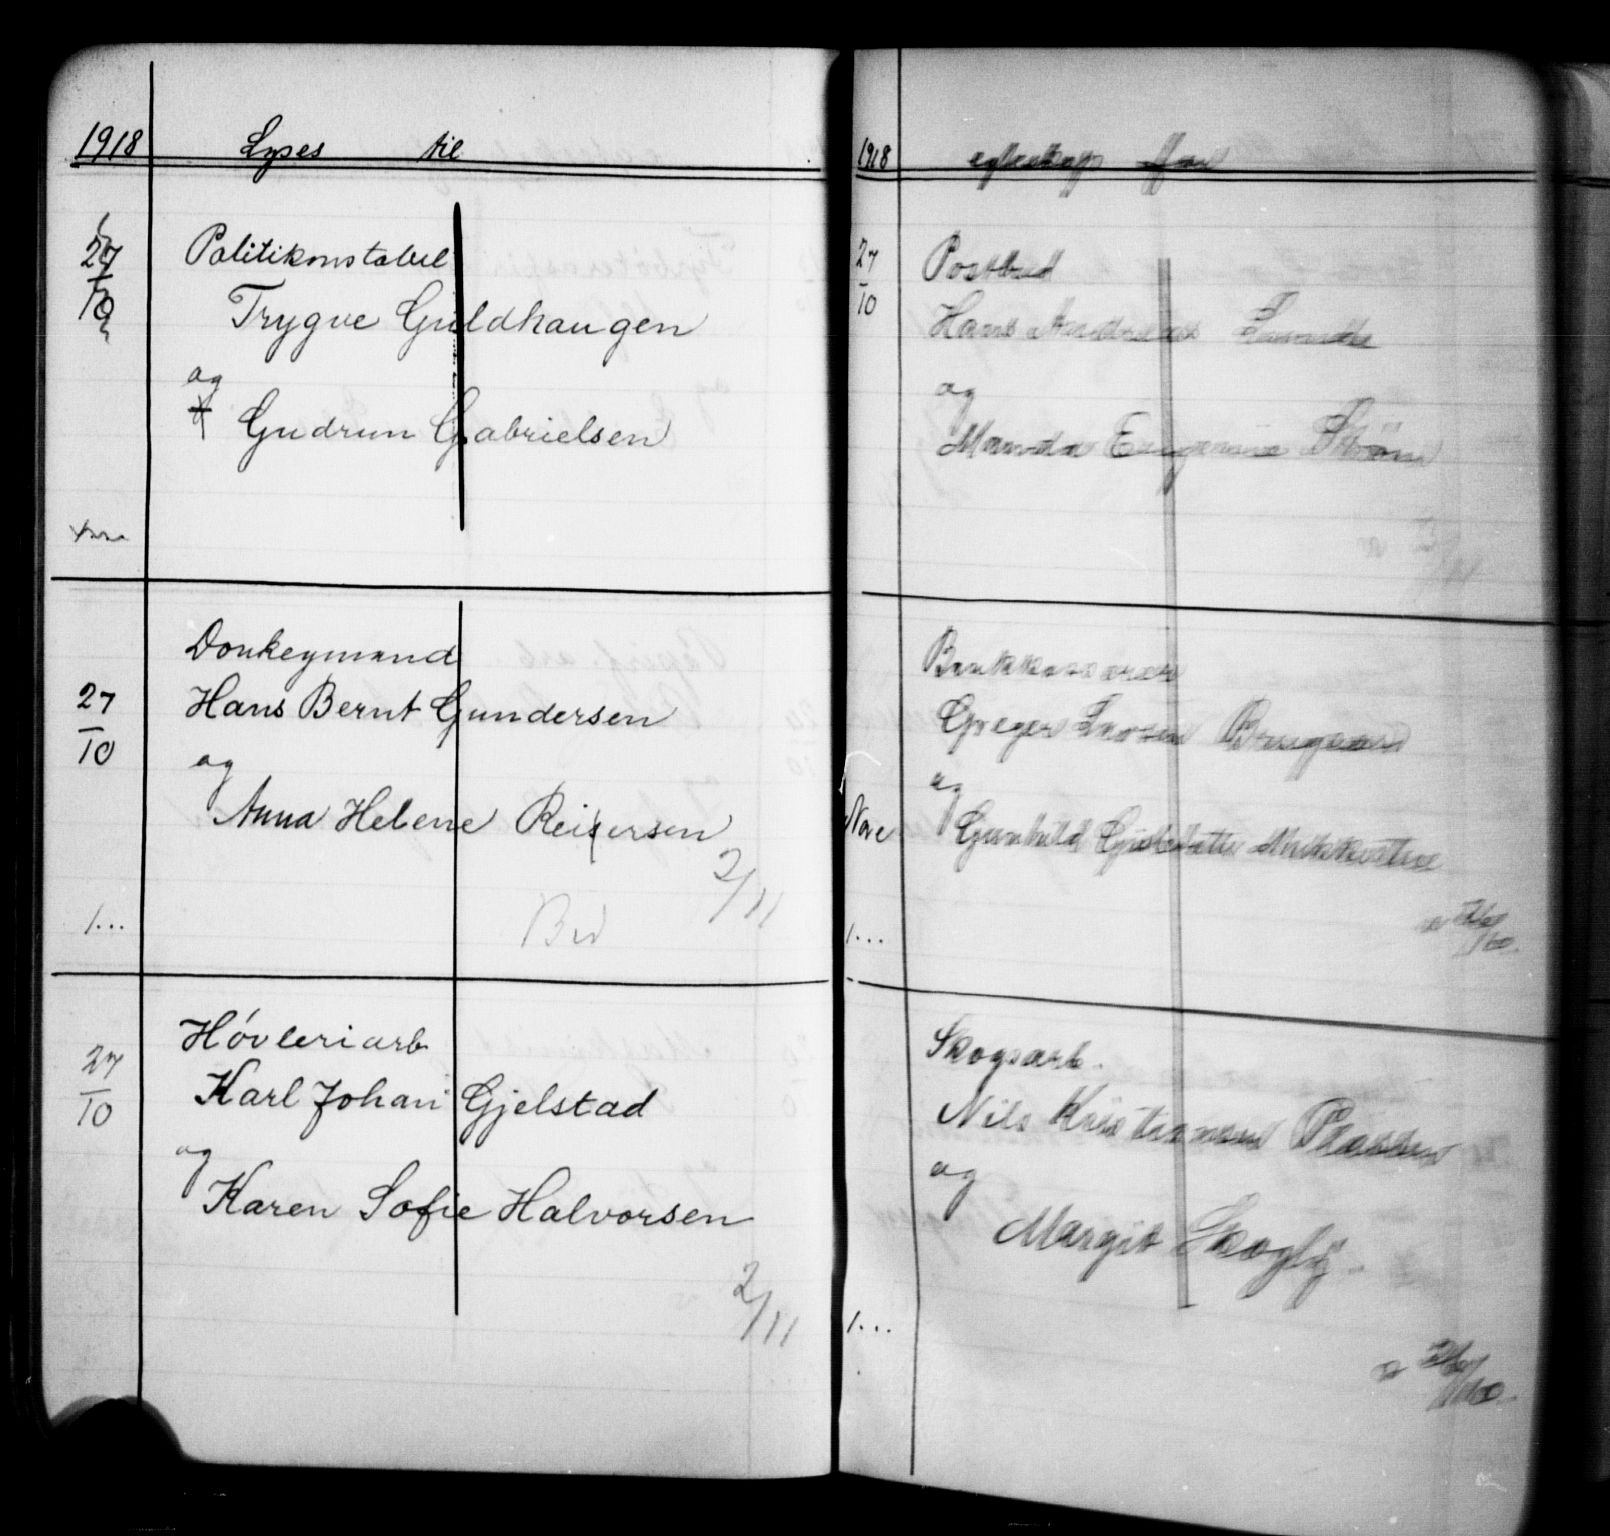 1918 Lyses til
27/10
Politikonstabel
Trygve Guldhaugen
og
Gudrun Gabrielsen
27/10
Donkeymand
Hans Bernt Gundersen
og
Anna Helene Reiersen
2/11
1...
27/10
Høvleriarb
Karl Johan Gjelstad
og
Karen Sofie Halvorsen
2/11
1918 egteskap for
27/10
Postbud
Hans Andreas Lunde
og
Manda Eugenie Strøm
Greger Larsen
og
Nore
Gunhild
1...
Skogsarb.
Nils Kristiansen
og
Margit Skogly
1...